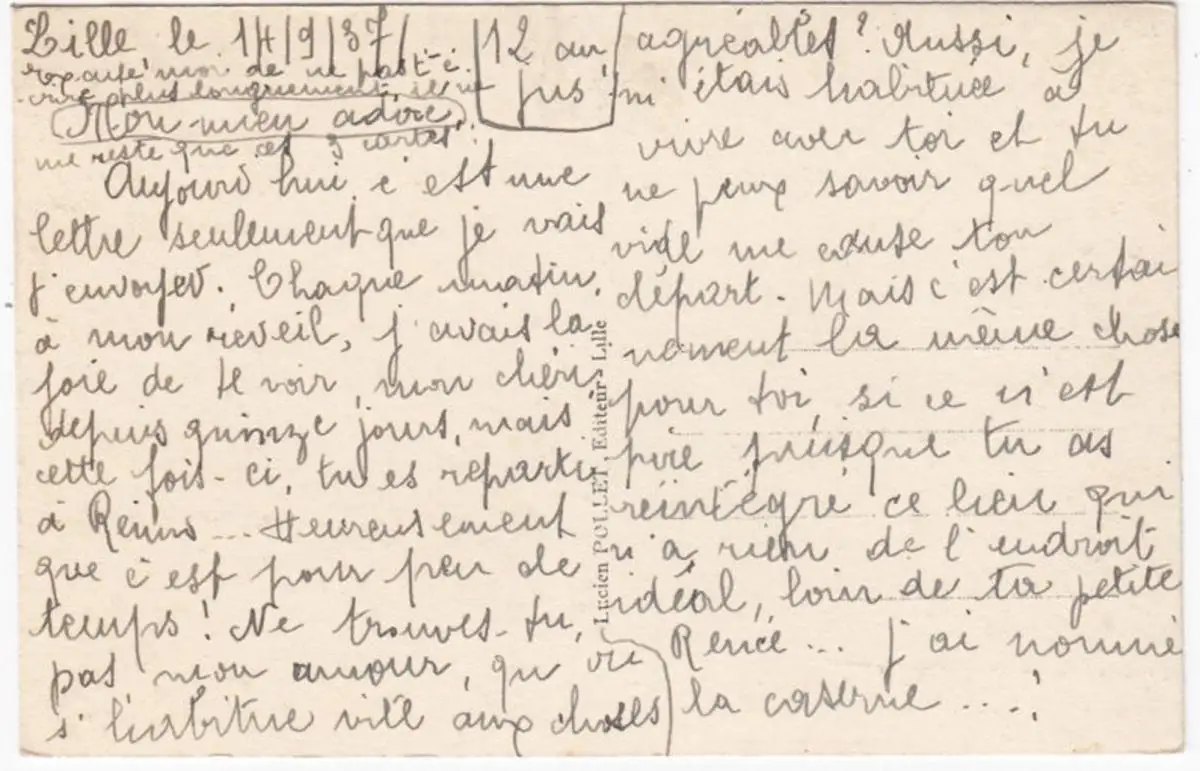 Lille le 14/9/37
12 au
jus
de ne pas
plus longuement, il ne
Mon mien adoré,
me reste que ces 3 cartes.
Aujourd'hui, c'est une
lettre seulement que je vais
t'envoyer. Chaque matin,
à mon réveil, j'avais la
joie de te voir, mon chéri
depuis quinze jours, mais
cette fois-ci, tu es reparti
à Reims... Heureusement
que c'est pour peu de
temps! Ne trouves-tu,
pas mon amour, qu'on
s'habitue vite aux choses
agréables? Aussi, je
m'étais habituée à
vivre avec toi et tu
ne peux savoir quel
vide me cause ton
départ. Mais c'est certai
nement la même chose
pour toi, si ce n'est
pire puisque tu as
réintégré ce lieu qui
n'a rien de l'endroit
idéal, loin de ta petite
Renée... J'ai nommé
la caserne....!
Lucien POLLET, Editeur - Lille